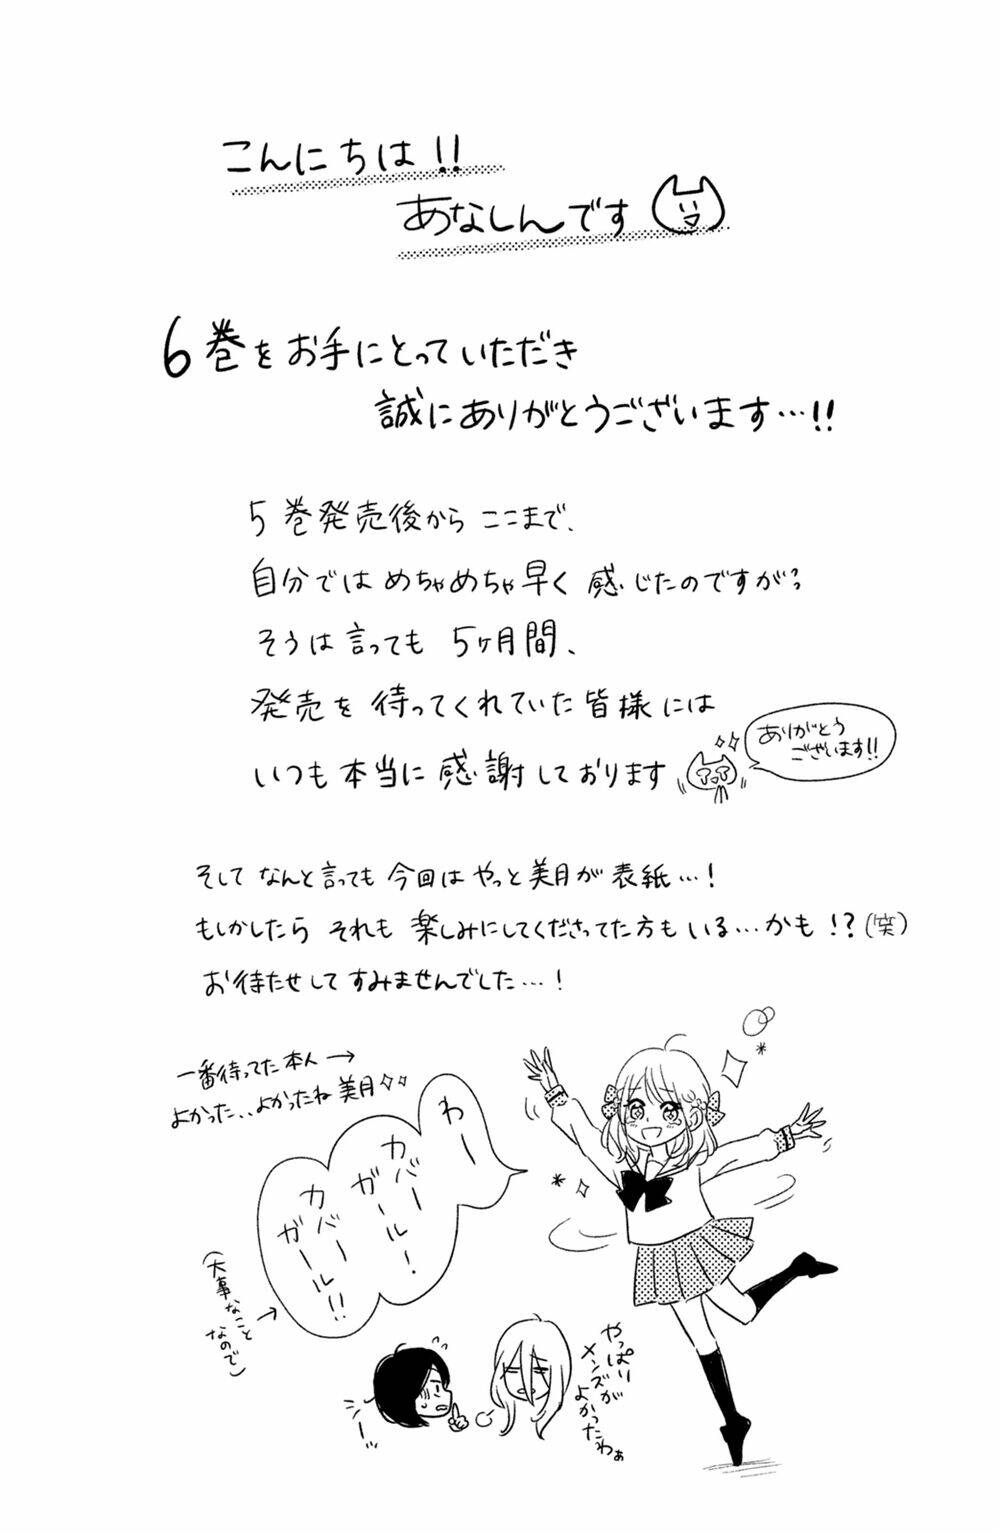 こんにちは!!
あなしんです
6巻をお手にとっていただき
誠にありがとうございます…!!
5巻発売後からここまで、
自分ではめちゃめちゃ早く感じたのですが?
そうは言っても5ヶ月間、
発売を待ってくれていた皆様には
いつも本当に感謝しております
ありがとう
ございます!!
そしてなんと言っても今回はやっと美月が表紙…!
もしかしたらそれも楽しみにしてくださってた方もいる…かも!?(笑)
お待たせしてすみませんでした…!
一番待ってた本人→
よかった..よかったね美月
わー
カバー
ガール!
カバー
ガール!!
(大事なこと
なので)
やっぱり
メンズが
よかったわぁ
シーッ